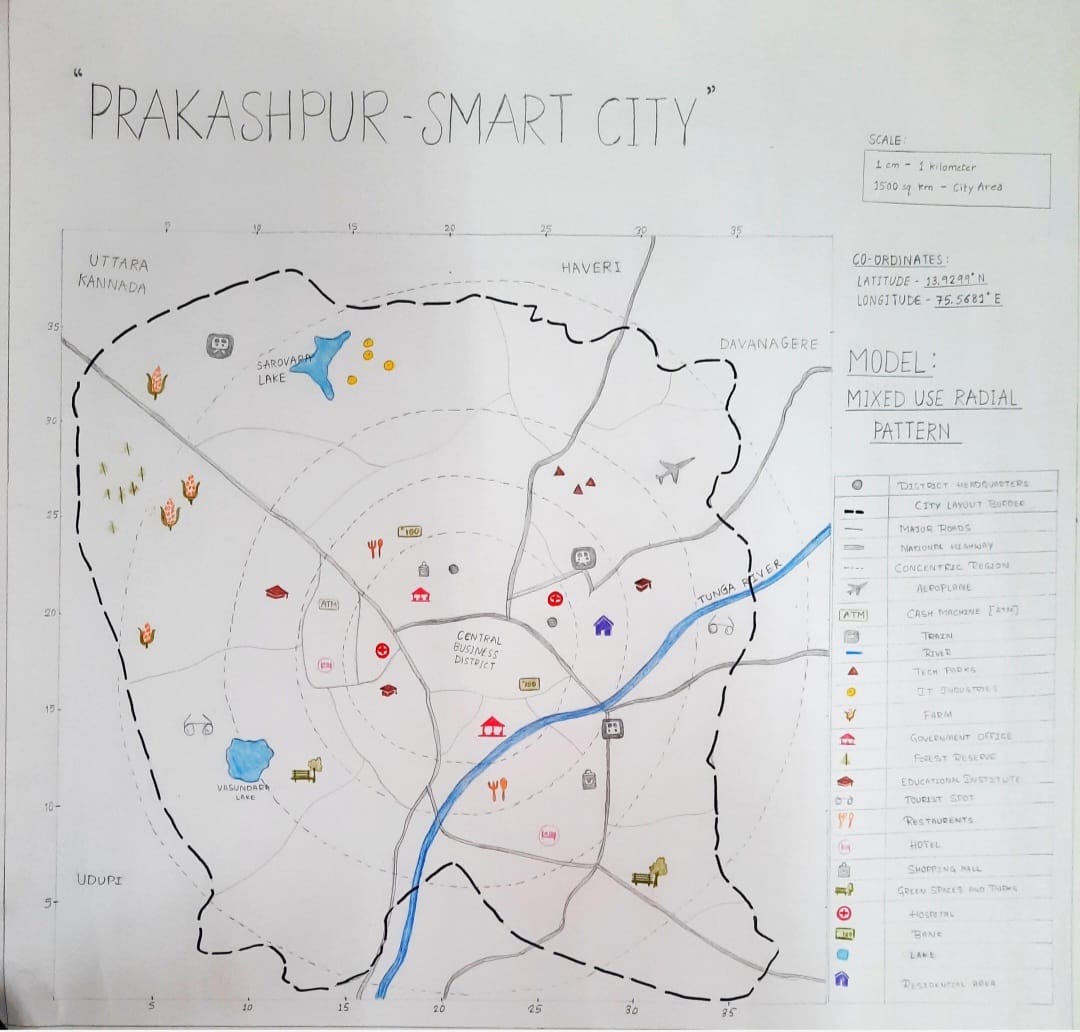 "PRAKASHPUR - SMART CITY"
SCALE:
1 cm - 1 kilometer
1500 sq km - City Area
CO-ORDINATES:
LATITUDE - 13.9299° N
LONGITUDE - 75.5681° E
MODEL:
MIXED USE RADIAL
PATTERN
5 10 15 20 25 30 35
UTTARA
KANNADA
HAVERI
DAVANAGERE
35
SAROVARA
LAKE
30
25
100
TUNGA RIVER
ATM
20
CENTRAL
BUSINESS
DISTRICT
100
15
VASUNDARA
LAKE
10
UDUPI
5
5 10 15 20 25 30 35
DISTRICT HEADQUARTERS
CITY LAYOUT BORDER
MAJOR ROADS
NATIONAL HIGHWAY
CONCENTRIC REGION
AEROPLANE
ATM CASH MACHINE [ATM]
TRAIN
RIVER
TECH PARKS
IT INDUSTRIES
FARM
GOVERNMENT OFFICE
FOREST RESERVE
EDUCATIONAL INSTITUTE
TOURIST SPOT
RESTAURENTS
HOTEL
SHOPPING MALL
GREEN SPACES AND PARKS
HOSPITAL
100 BANK
LAKE
RESIDENTIAL AREA